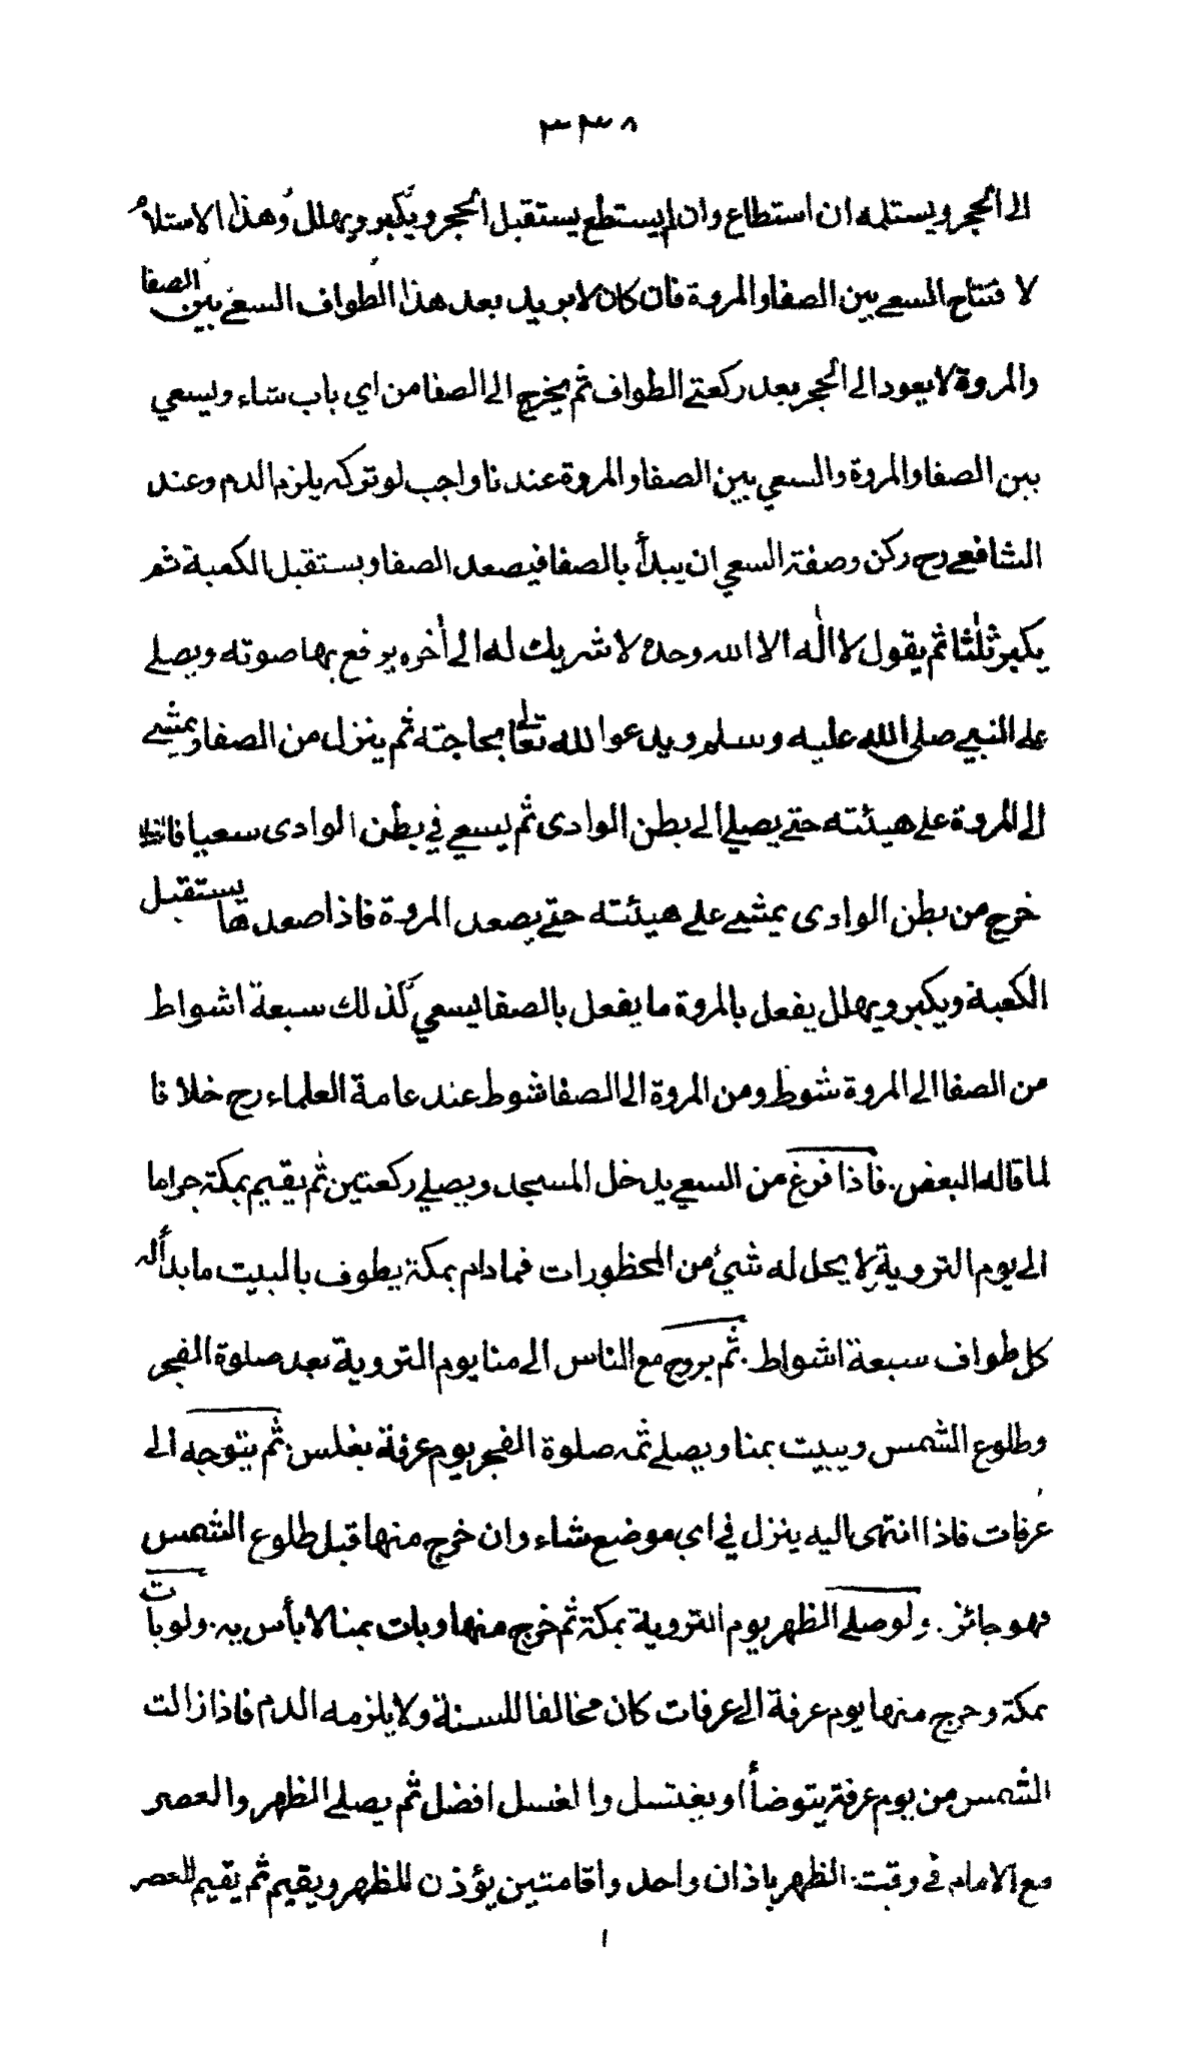 ٣٣٨
الى الحجر ويستلمه ان استطاع وان لم يستطع يستقبل الحجر ويكبر ويهلل وهذا الاستلام
لا فتتاح السعي بين الصفا والمروة فان كان لا يريد بعد هذا الطواف السعي بين الصفا
والمروة لا يعود الى الحجر بعد ركعتي الطواف ثم يخرج الى الصفا من اي باب شاء ويسعي
بين الصفا والمروة والسعي بين الصفا والمروة عندنا واجب لو تركه يلزم الدم وعند
الشافعي رح ركن وصفة السعي ان يبدأ بالصفا فيصعد الصفا ويستقبل الكعبة ثم
يكبر ثلٰثا ثم يقول لا الٰه الا الله وحده لا شريك له الى أخره يرفع بها صوته ويصلي
على النبي صلى الله عليه وسلم ويدعوا لله تعالى بحاجته ثم ينزل من الصفا ويمشي
الى المروة على هيئته حتى يصلي الى بطن الوادى ثم يسعي في بطن الوادى سعيا فاذا
خرج من بطن الوادى يمشي على هيئته حتى يصعد المروة فاذا صعدها يستقبل
الكعبة ويكبر ويهلل يفعل بالمروة ما يفعل بالصفا يسعي كذلك سبعة اشواط
من الصفا الى المروة شوط ومن المروة الى الصفا شوط عند عامة العلماء رح خلافا
لما قاله البعض. فاذا فرغ من السعي يدخل المسجد ويصلي ركعتين ثم يقيم بمكة حراما
الى يوم التروية لا يحل له شيء من المحظورات فما دام بمكة يطوف بالبيت ما بدأله
كل طواف سبعة اشواط. ثم يروح مع الناس الى منا يوم التروية بعد صلوة الفجر
وطلوع الشمس ويبيت بمنا ويصلي ثمه صلوة الفجر يوم عرفة بغلس. ثم يتوجه الى
عرفات فاذا انتهى اليه ينزل في اي موضع شاء وان خرج منها قبل طلوع الشمس
فهو جائز. ولو صلى الظهر يوم التروية بمكة ثم خرج منها وبات بمنا لا بأس به. ولو بات
بمكة وخرج منها يوم عرفة الى عرفات كان مخالفا للسنة ولا يلزمه الدم فاذا زالت
الشمس من يوم عرفة يتوضأ او يغتسل والغسل افضل ثم يصلي الظهر والعصر
مع الامام في وقت الظهر باذان واحد واقامتين يؤذن للظهر ويقيم ثم يقيم للعصر